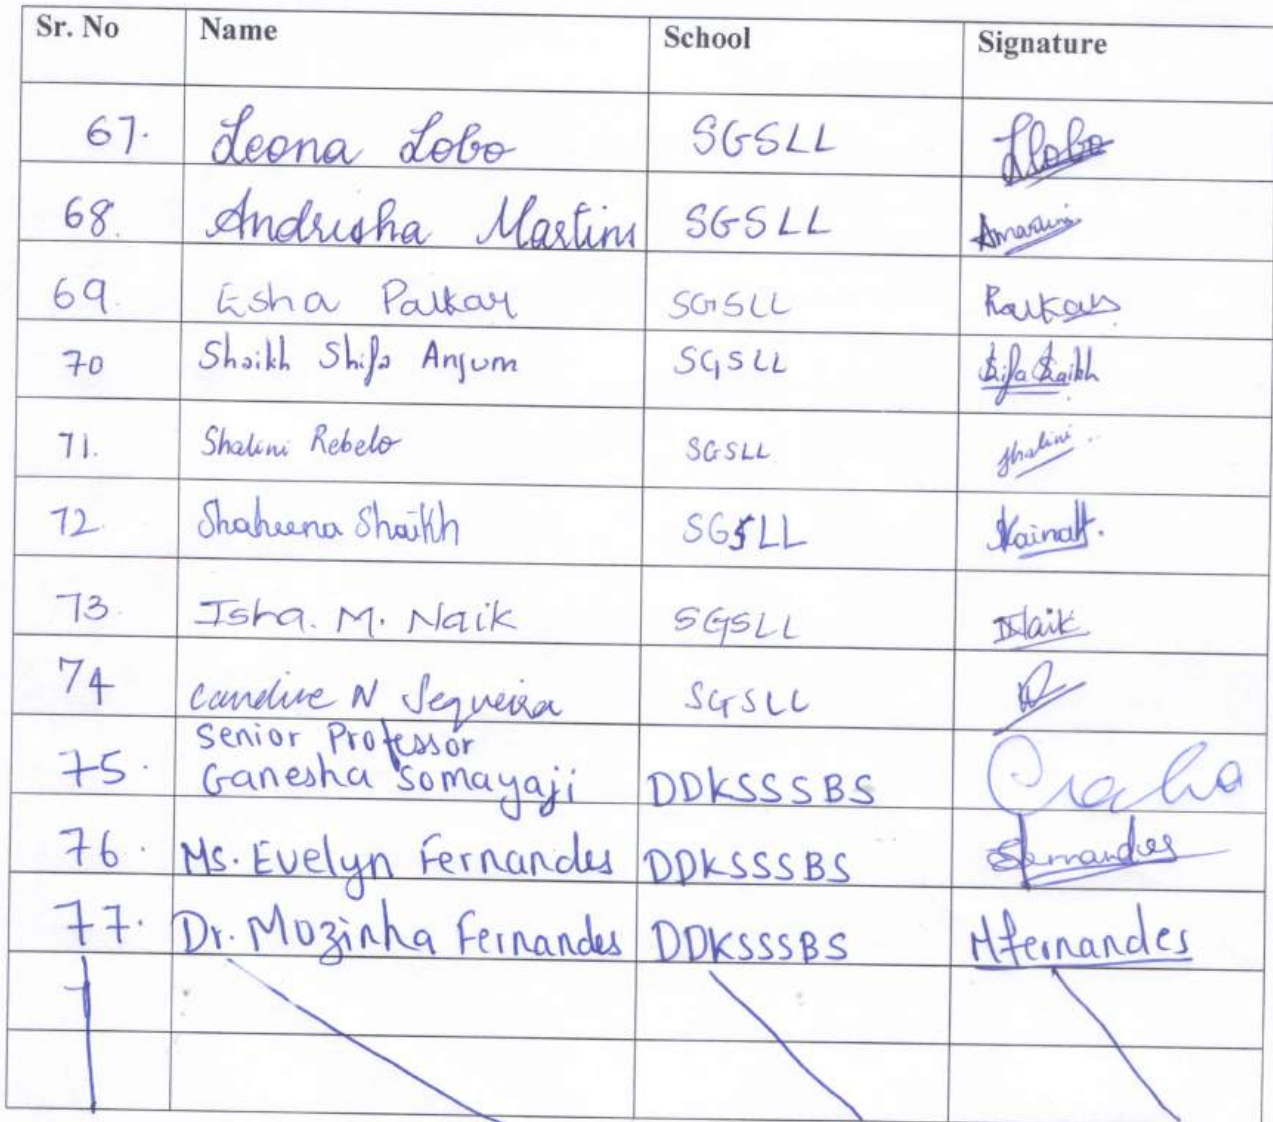 Sr. No Name School Signature
67. Leona Lobo SGSLL LLobo
68. Andrisha Martins SGSLL Amartins
69. Esha Palkar SGSLL Palkar
70 Shaikh Shifa Anjum SGSLL Shifa Shaikh
71. Shalini Rebelo SGSLL Shalini
72. Shaheena Shaikh SGSLL
73. Isha. M. Naik SGSLL INaik
74 Candice N Sequeira SGSLL
Senior Professor
75. Ganesha Somayaji DDKSSSBS
76. Ms. Evelyn Fernandes DDKSSSBS EFernandes
77. Dr. Mozinha Fernandes DDKSSSBS MFernandes